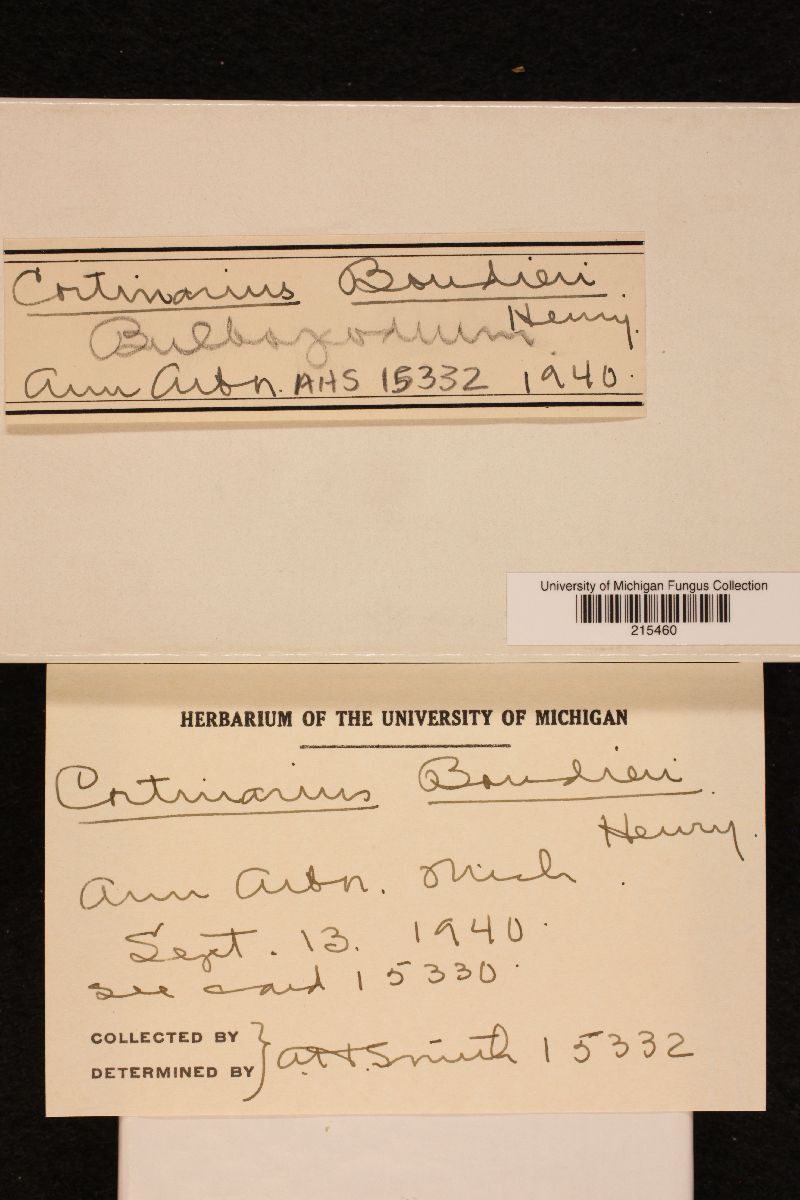 Cortinarius Boudieri
Henry.
Bulbopodium
Ann Arbor. AHS 15332 1940.
University of Michigan Fungus Collection
215460
HERBARIUM OF THE UNIVERSITY OF MICHIGAN
Cortinarius Boudieri.
Henry.
Ann Arbor. Mich.
Sept. 13. 1940.
see card 15330.
COLLECTED BY
DETERMINED BY } A.H.Smith 15332